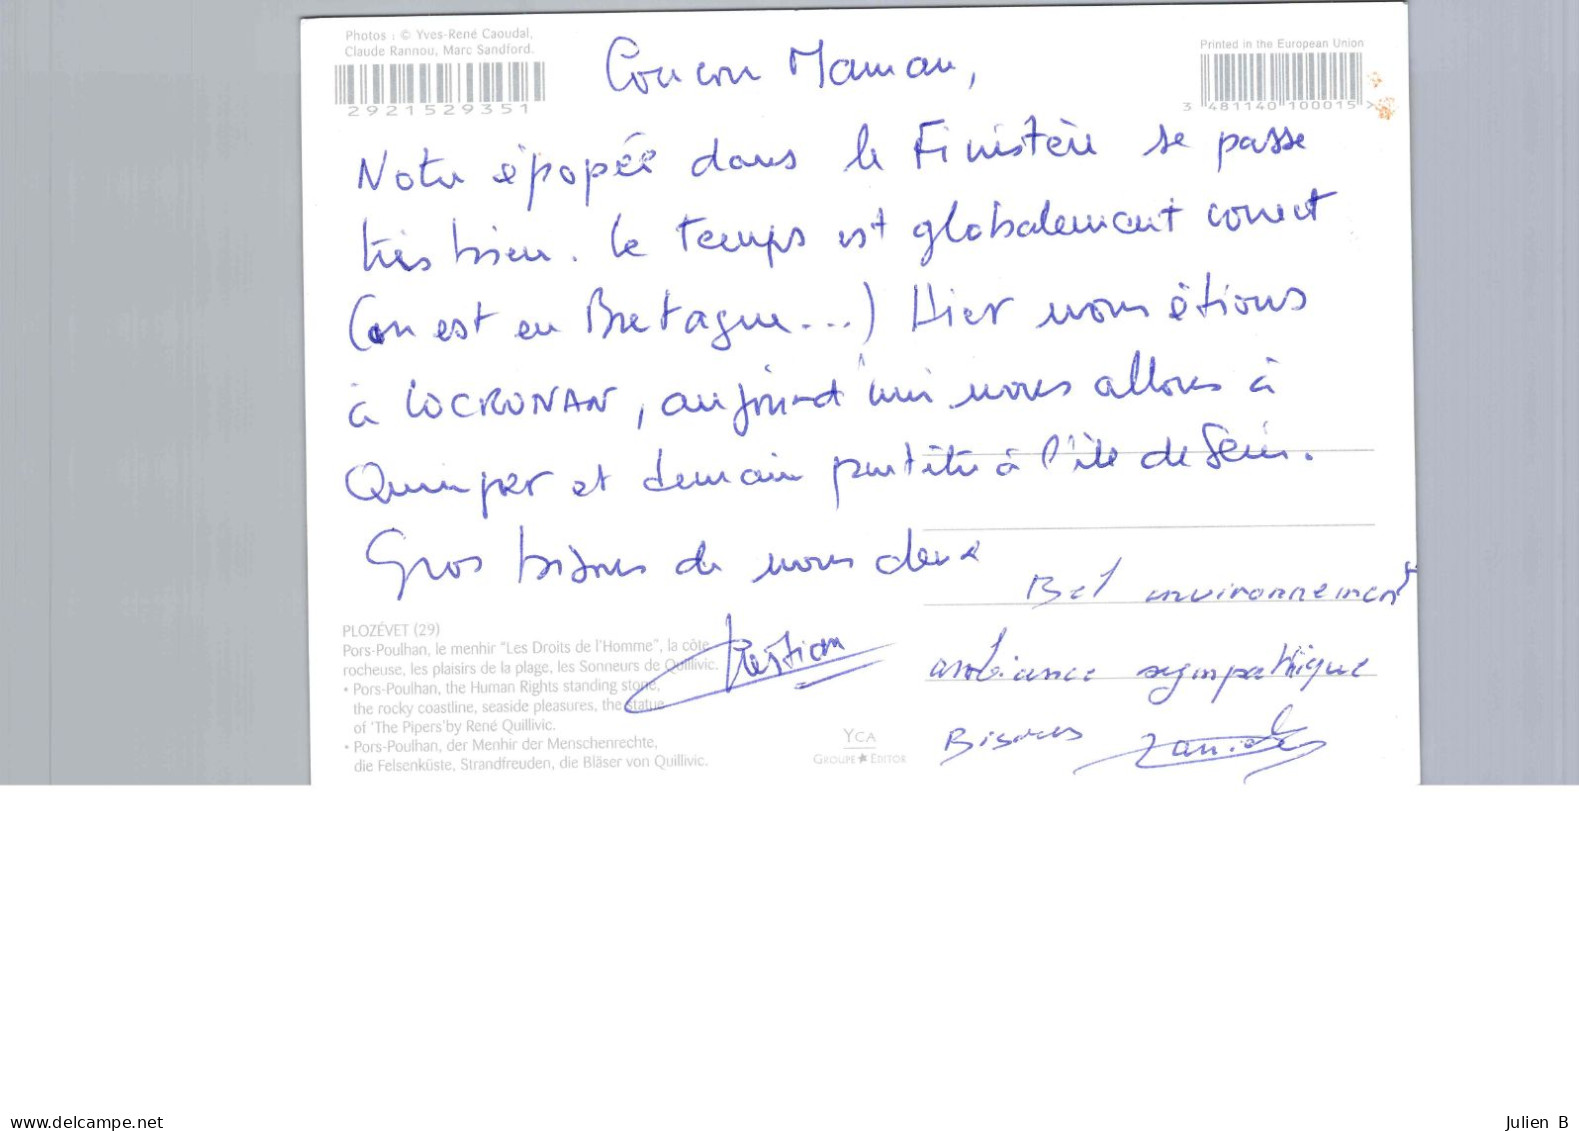 Photos : © Yves-René Caoudal,
Claude Rannou, Marc Sandford.
2921529351
Printed in the European Union
3 481140 100015 >
Coucou Maman,
Notre épopée dans le Finistère se passe
très bien. Le temps est globalement correct
(on est en Bretagne...) Hier nous étions
à LOCRONAN, aujourd'hui nous allons à
Quimper et demain peut être à l'île de Sein.
Gros bisous de nous deux
Bel environnement
ambiance sympathique
Bisous
PLOZÉVET (29)
Pors-Poulhan, le menhir "Les Droits de l'Homme", la côte
rocheuse, les plaisirs de la plage, les Sonneurs de Quillivic.
• Pors-Poulhan, the Human Rights standing stone,
the rocky coastline, seaside pleasures, the statue
of 'The Pipers'by René Quillivic.
• Pors-Poulhan, der Menhir der Menschenrechte,
die Felsenküste, Strandfreuden, die Bläser von Quillivic.
YCA
GROUPE ★ EDITOR
www.delcampe.net
Julien B